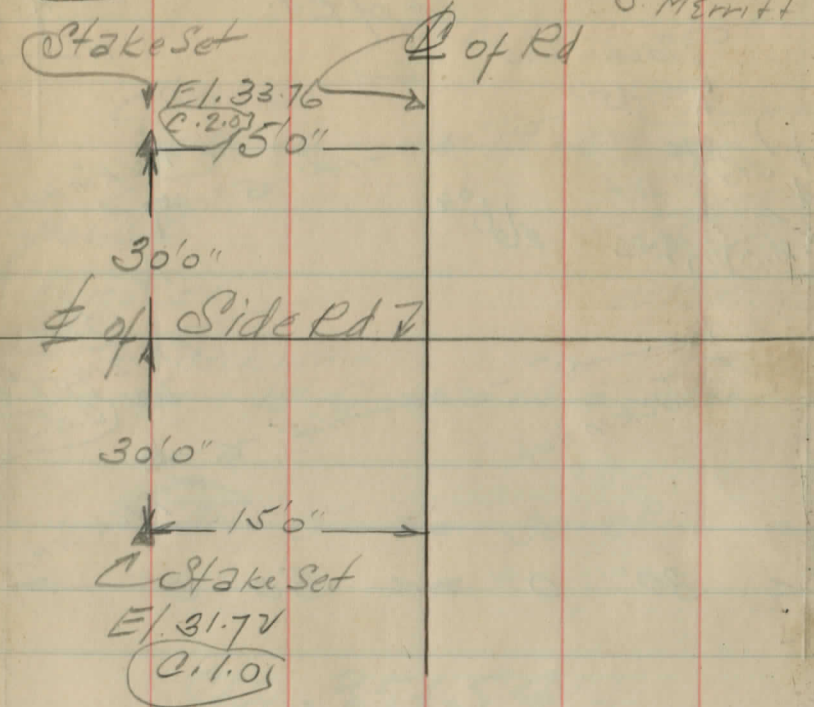 J. Merritt
Stake Set ℄ of Rd
El. 33.76
C. 2.0
15'0"
30'0"
℄ of Side Rd
30'0"
15'0"
Stake Set
El. 31.72
C. 1.0